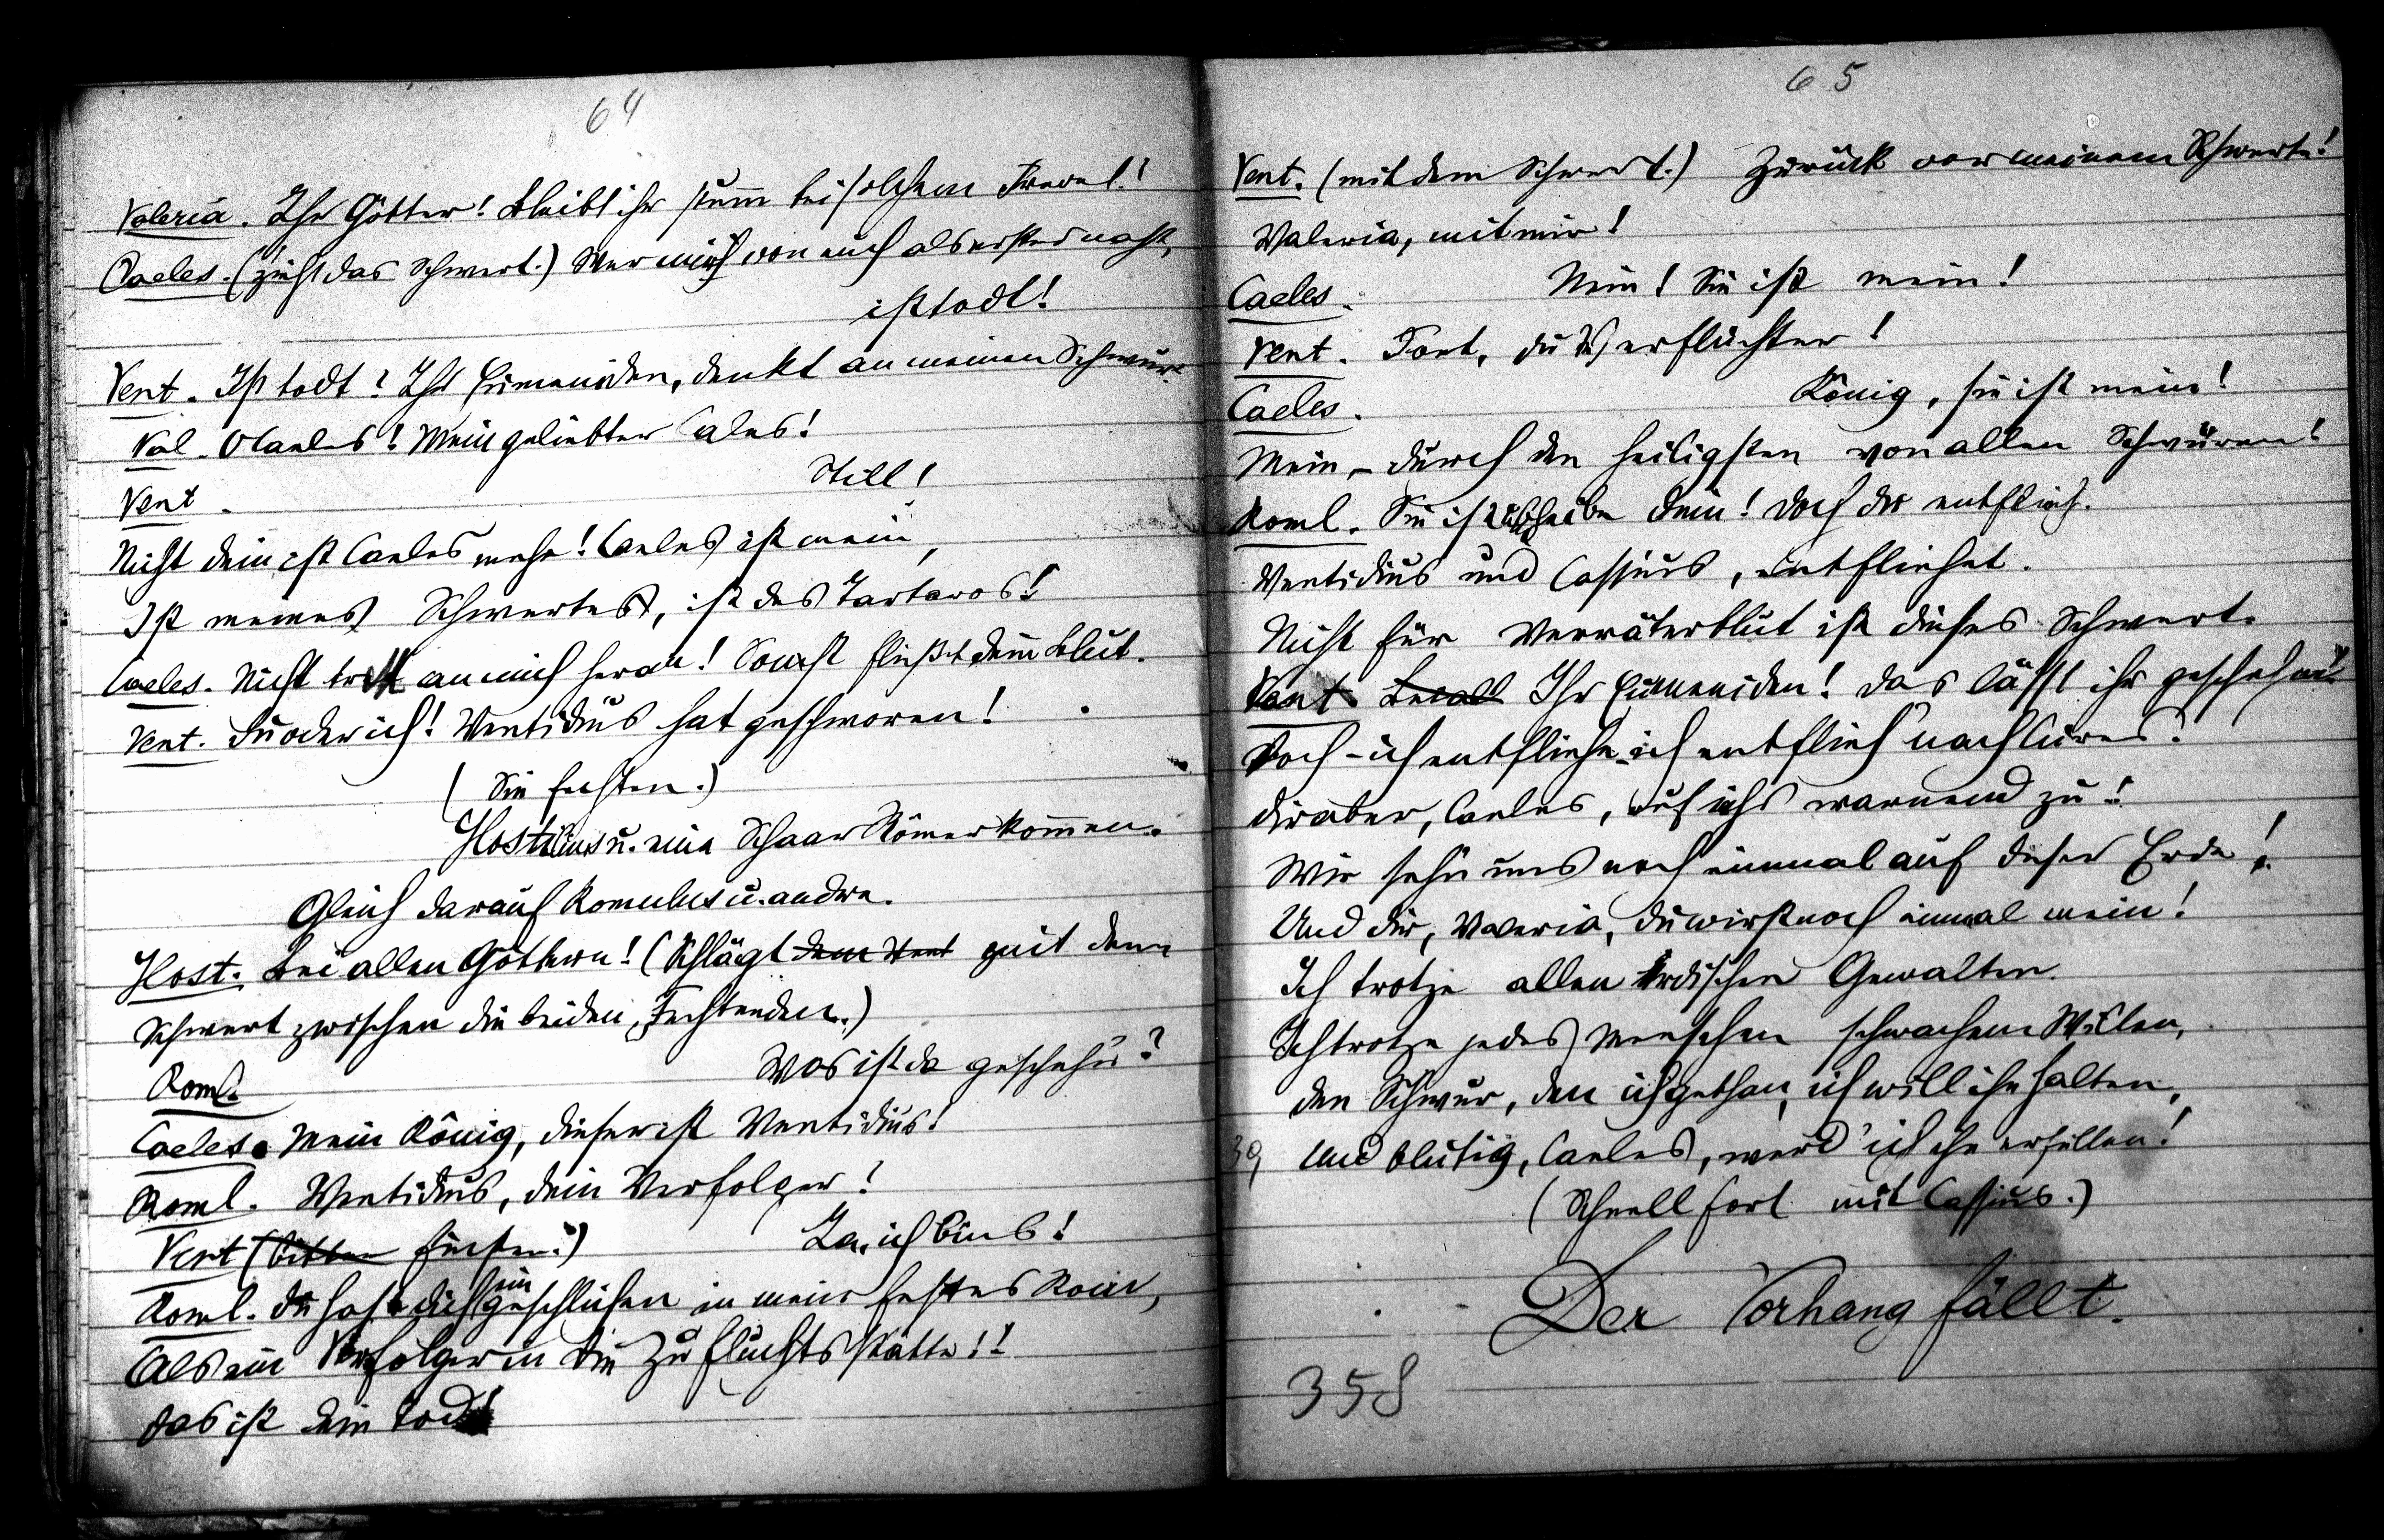 64
Valeria. Ihr Götter! Bleibt ihr stumm bei solchem Frevel!
Caeles. (zieht das Schwert.) Wer mich von euch als erster naht,
ist todt!
Vent. Ist todt? Ihr Eumeniden, denkt an meinen Schwur!
Val. O Caeles! Mein geliebter Cales!
Vent. Still!
Nicht dein ist Caeles mehr! Caeles ist mein,
Ist meines Schwertes, ist des Tartaros!
Caeles. Nicht tritt an mich heran! Sonst fließt dein Blut.
Vent. Du oder ich! Ventidius hat geschworen!
(Sie fechten.)
Hostilius u. eine Schaar Römer kommen.
Gleich darauf Romulus u. andre.
Host. Bei allen Göttern! (Schlägt dem Vent mit dem
Schwert zwischen die beiden Fechtenden.)
Roml. Was ist da geschehn?
Caeles. Mein König, dieser ist Ventidius!
Roml. Ventidius, dein Verfolger!
Vent (bitter finster.) Ja, ich bin's!
Roml. Du hast dich eingeschlichen in mein festes Rom,
Als ein Verfolger in die Zufluchtsstätte!!
Das ist dein Tod!
65
Vent. (mit dem Schwert.) Zurück vor meinem Schwerte!
Valeria, mit mir!
Caeles. Nein! Sie ist mein!
Vent. Fort, du Verfluchter!
Caeles. König, sie ist mein!
Mein, – durch den heiligsten von allen Schwüren!
Roml. Sie ist dein! Doch du entflieh.
Ventidius und Cassius, entfliehet.
Nicht für Verräterblut ist dieses Schwert.
Vent. Ihr Eumeniden! Das läßt ihr geschehn!
Doch – ich entfliehe, ich entflieh' nach Cures!
Dir aber, Caeles, ruf ichs warnend zu:
Wir sehn uns noch einmal auf dieser Erde!
Und dir, Valeria, du wirst noch einmal mein!
Ich trotze allen irdischen Gewalten.
Ich trotze jedes Menschen schwachem Willen,
Den Schwur, den ich gethan, ich will ihn halten,
39 Und blutig, Caeles, werd' ich ihn erfüllen!
(Schnell fort mit Cassius.)
Der Vorhang fällt.
358